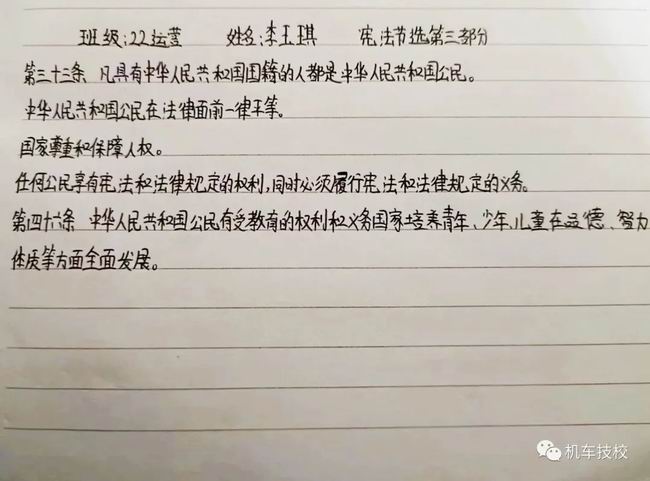 班级:22运营 姓名:李玉琪 宪法节选第三部分
第三十三条 凡具有中华人民共和国国籍的人都是中华人民共和国公民。
中华人民共和国公民在法律面前一律平等。
国家尊重和保障人权。
任何公民享有宪法和法律规定的权利,同时必须履行宪法和法律规定的义务。
第四十六条 中华人民共和国公民有受教育的权利和义务国家培养青年、少年、儿童在品德、智力
体质等方面全面发展。
机车技校